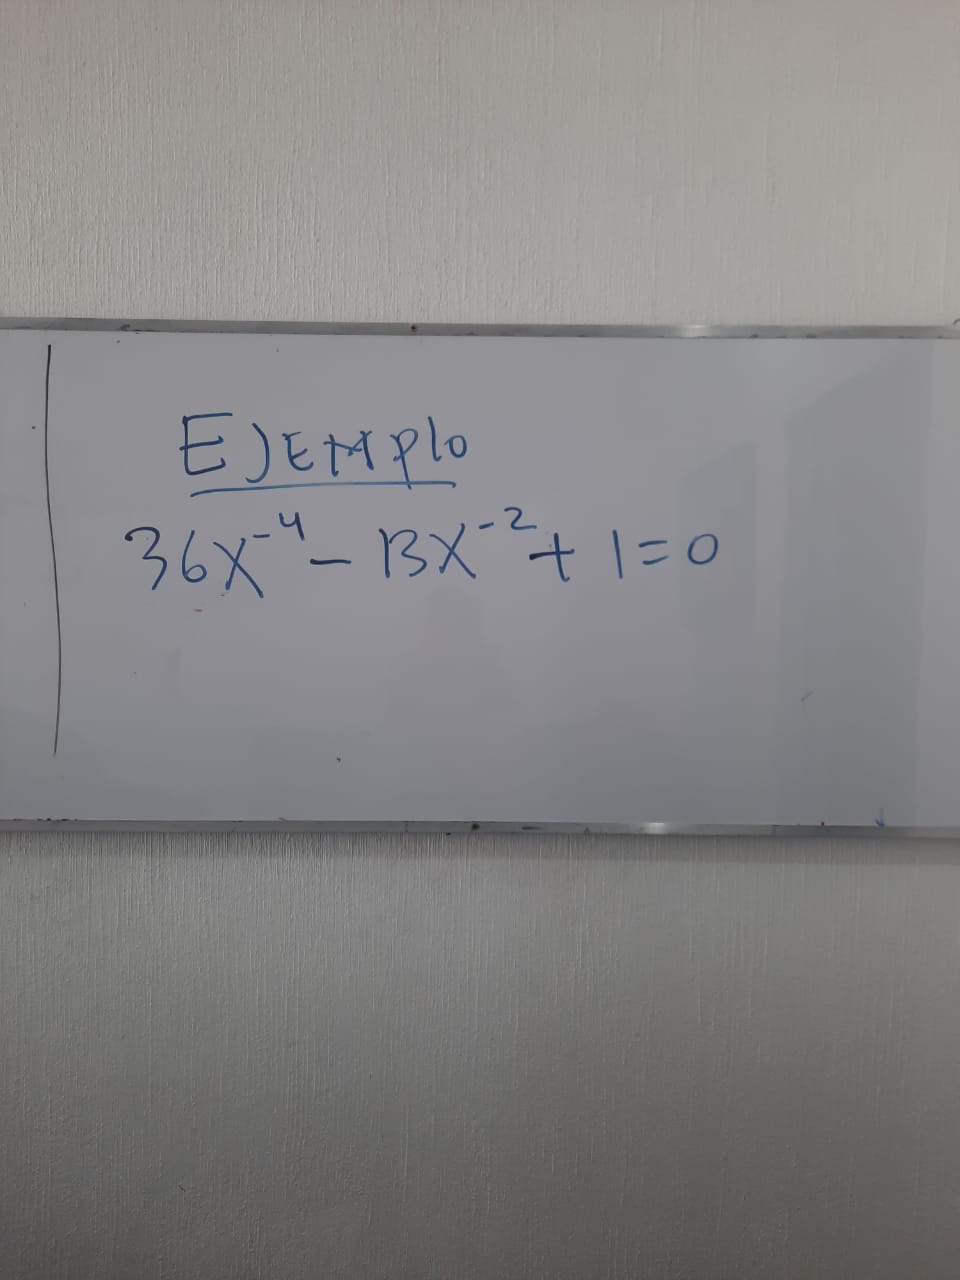 EJEMPlO
36x⁻⁴ - 13x⁻² + 1 = 0